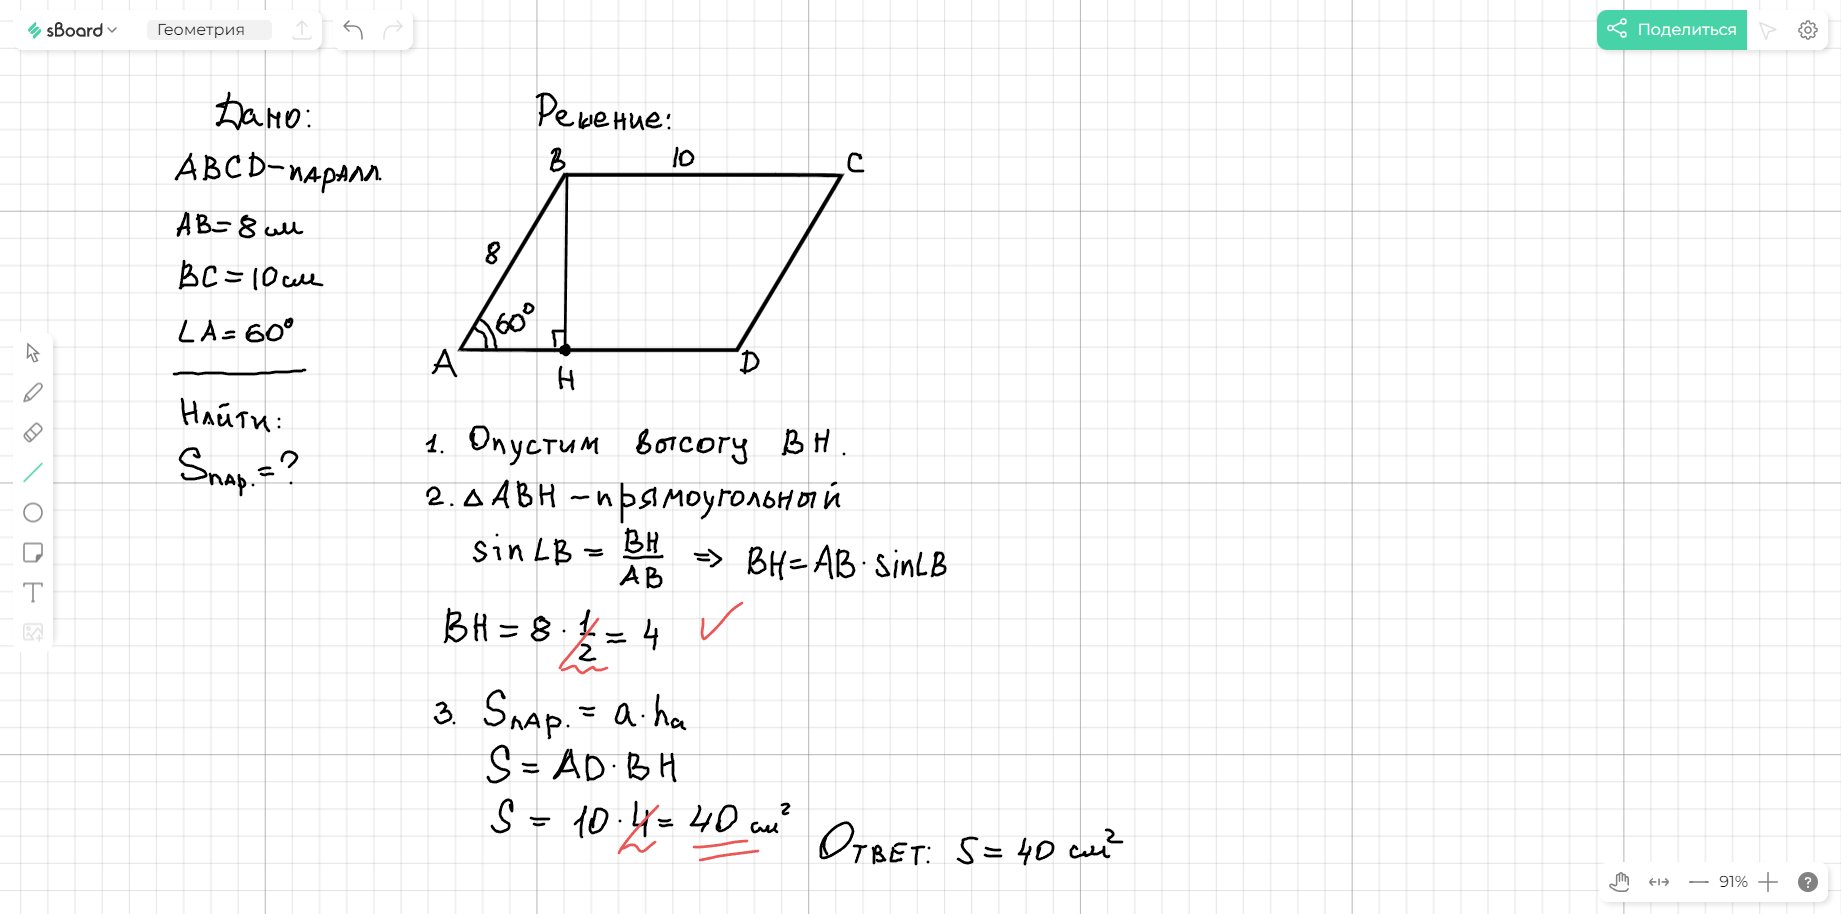 sBoard
Геометрия
Поделиться
Дано:
ABCD-паралл.
AB=8см
BC=10см
∠A=60°
Найти:
Sпар.=?
Решение:
B 10 C
8
60°
A H D
1. Опустим высоту BH.
2. △ABH - прямоугольный
sin∠B = BH/AB ⇒ BH=AB·sin∠B
BH = 8 · 1/2 = 4 ✓
3. Sпар. = a·hₐ
S = AD·BH
S = 10·4 = 40 см²
Ответ: S = 40 см²
91%